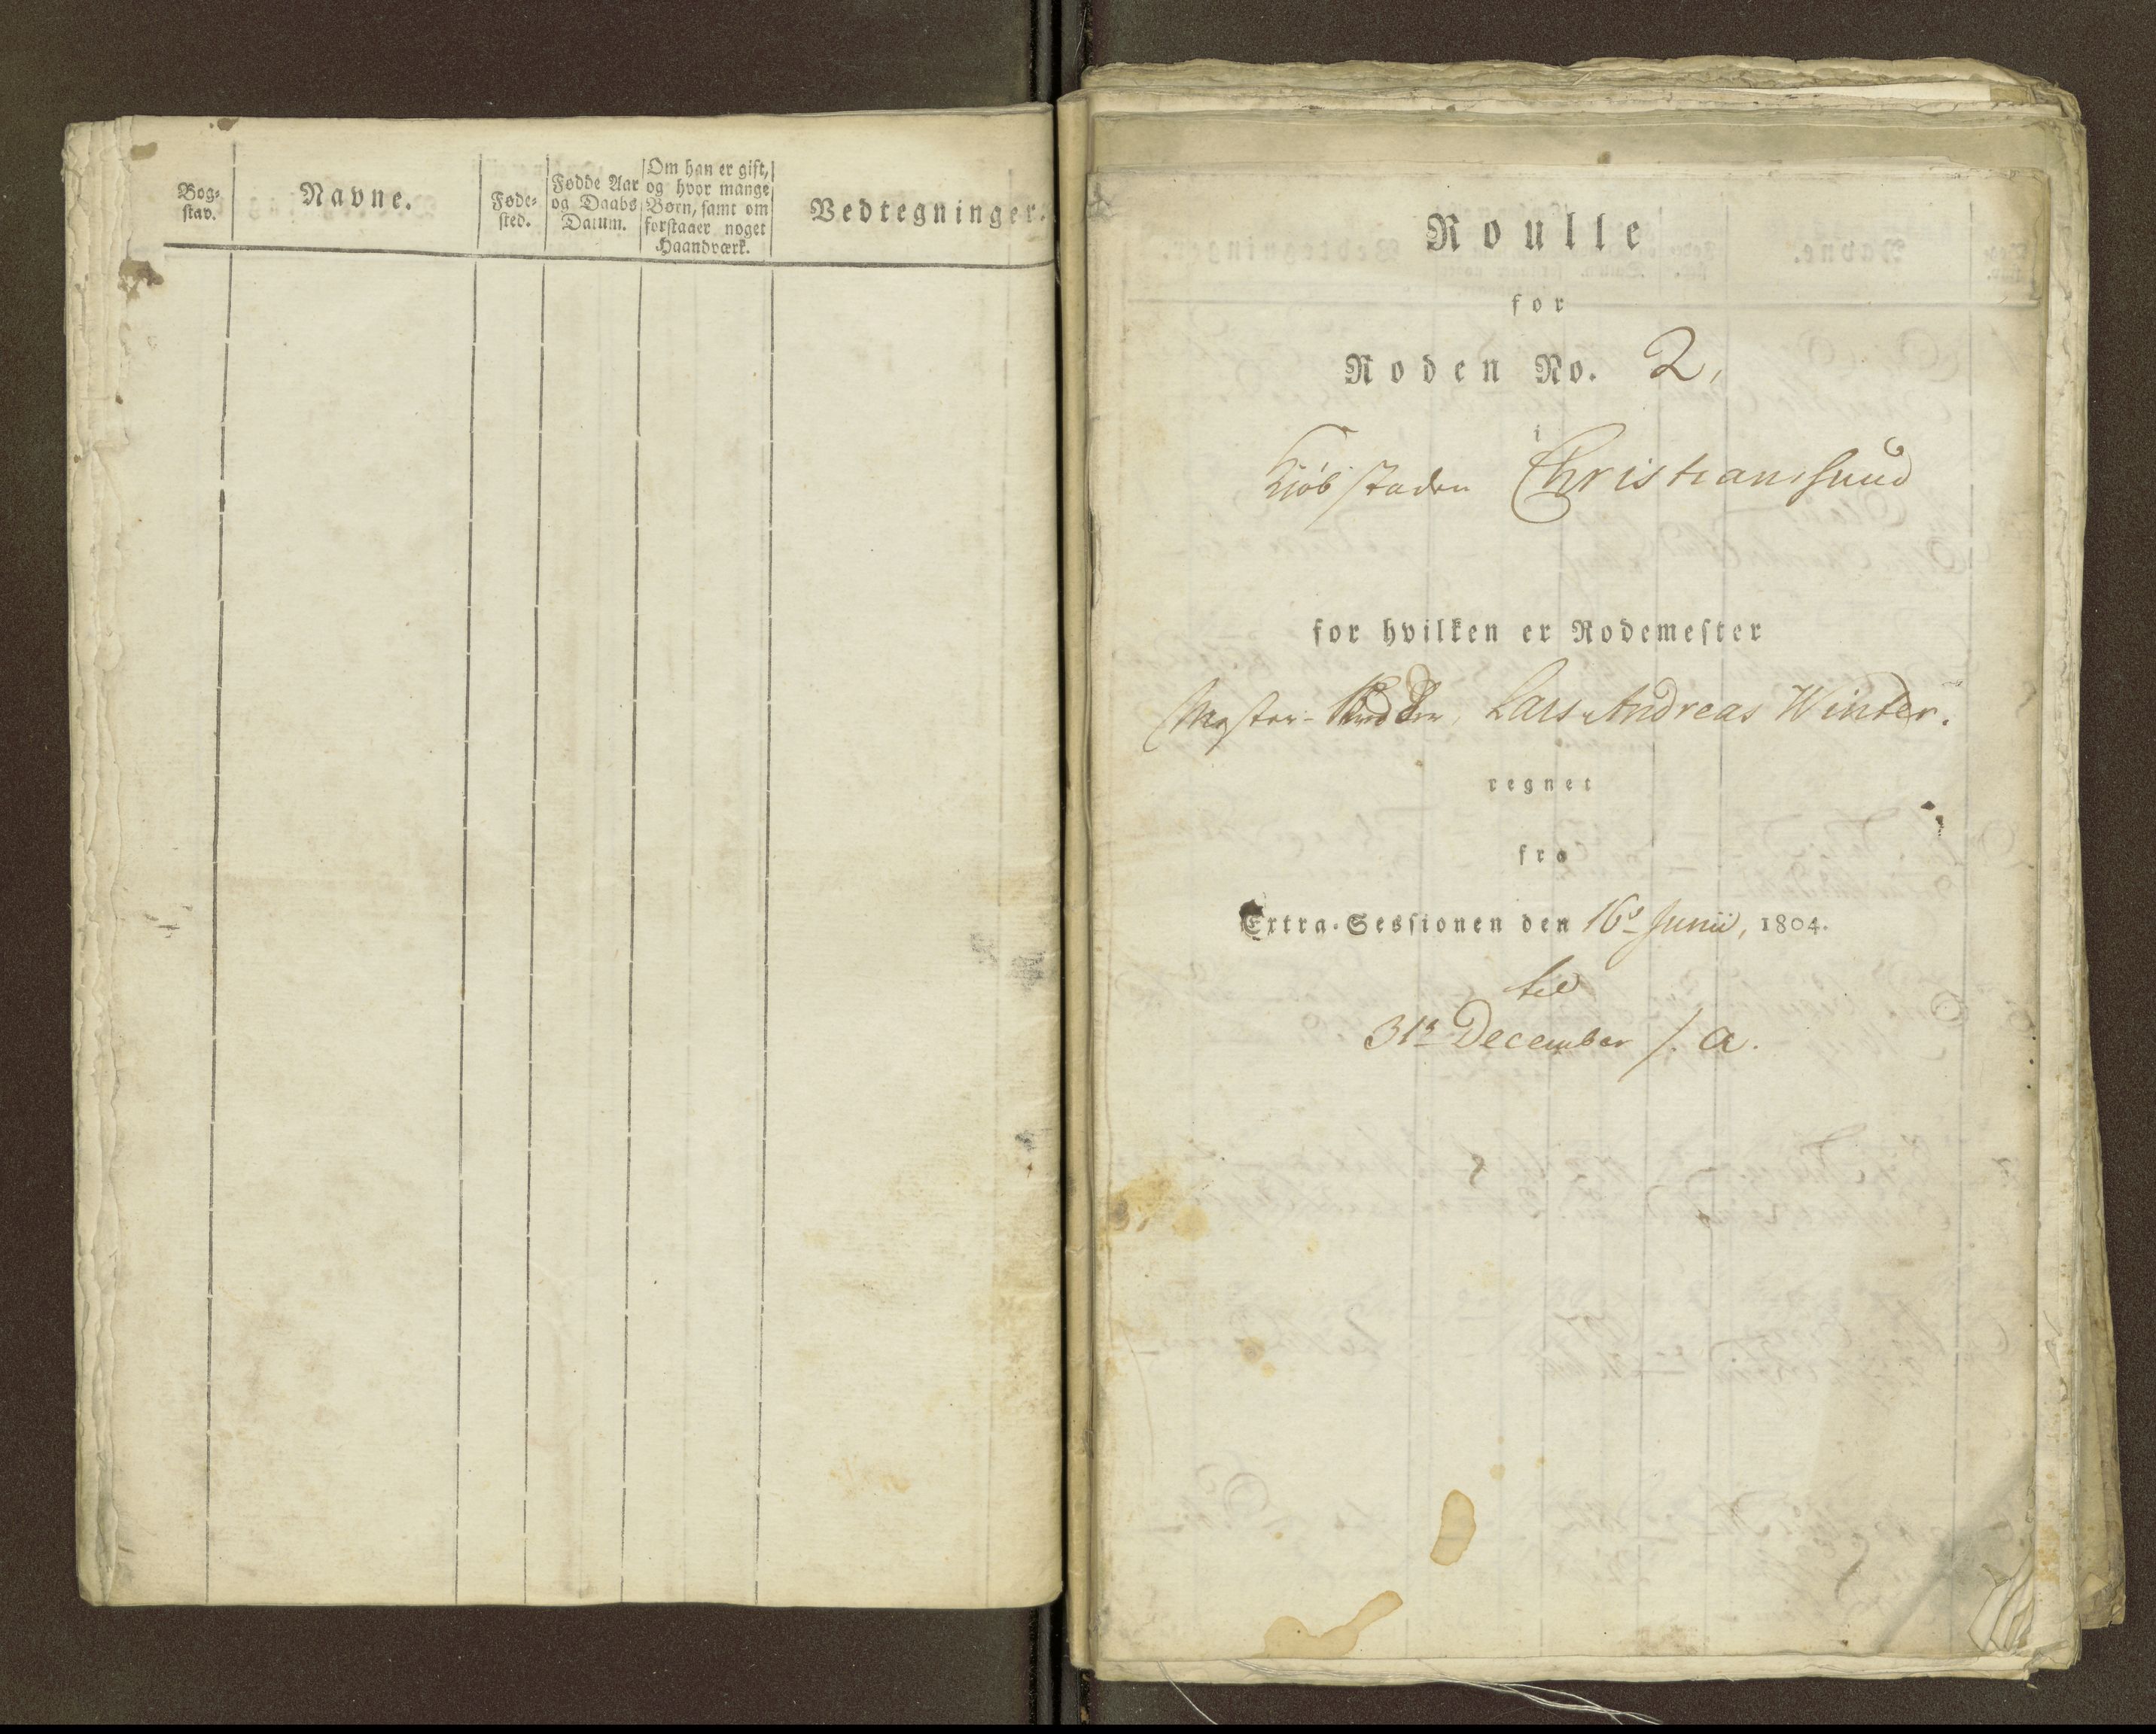 Bog-
stav.
Navne.
Føde-
sted.
Fødde Aar
og Daabs
Datum.
Om han er gift,
og hvor mange
Børn, samt om
forstaaer noget
Haandværk.
Vedtegninger.
Roulle
for
Roden No. 2,
i
Kiöbstaden Christiansund
for hvilken er Rodemester
Lars Andreas Winter.
regnet
fra
Extra-Sessionen den 16de Junii, 1804.
til
31te December s. a.